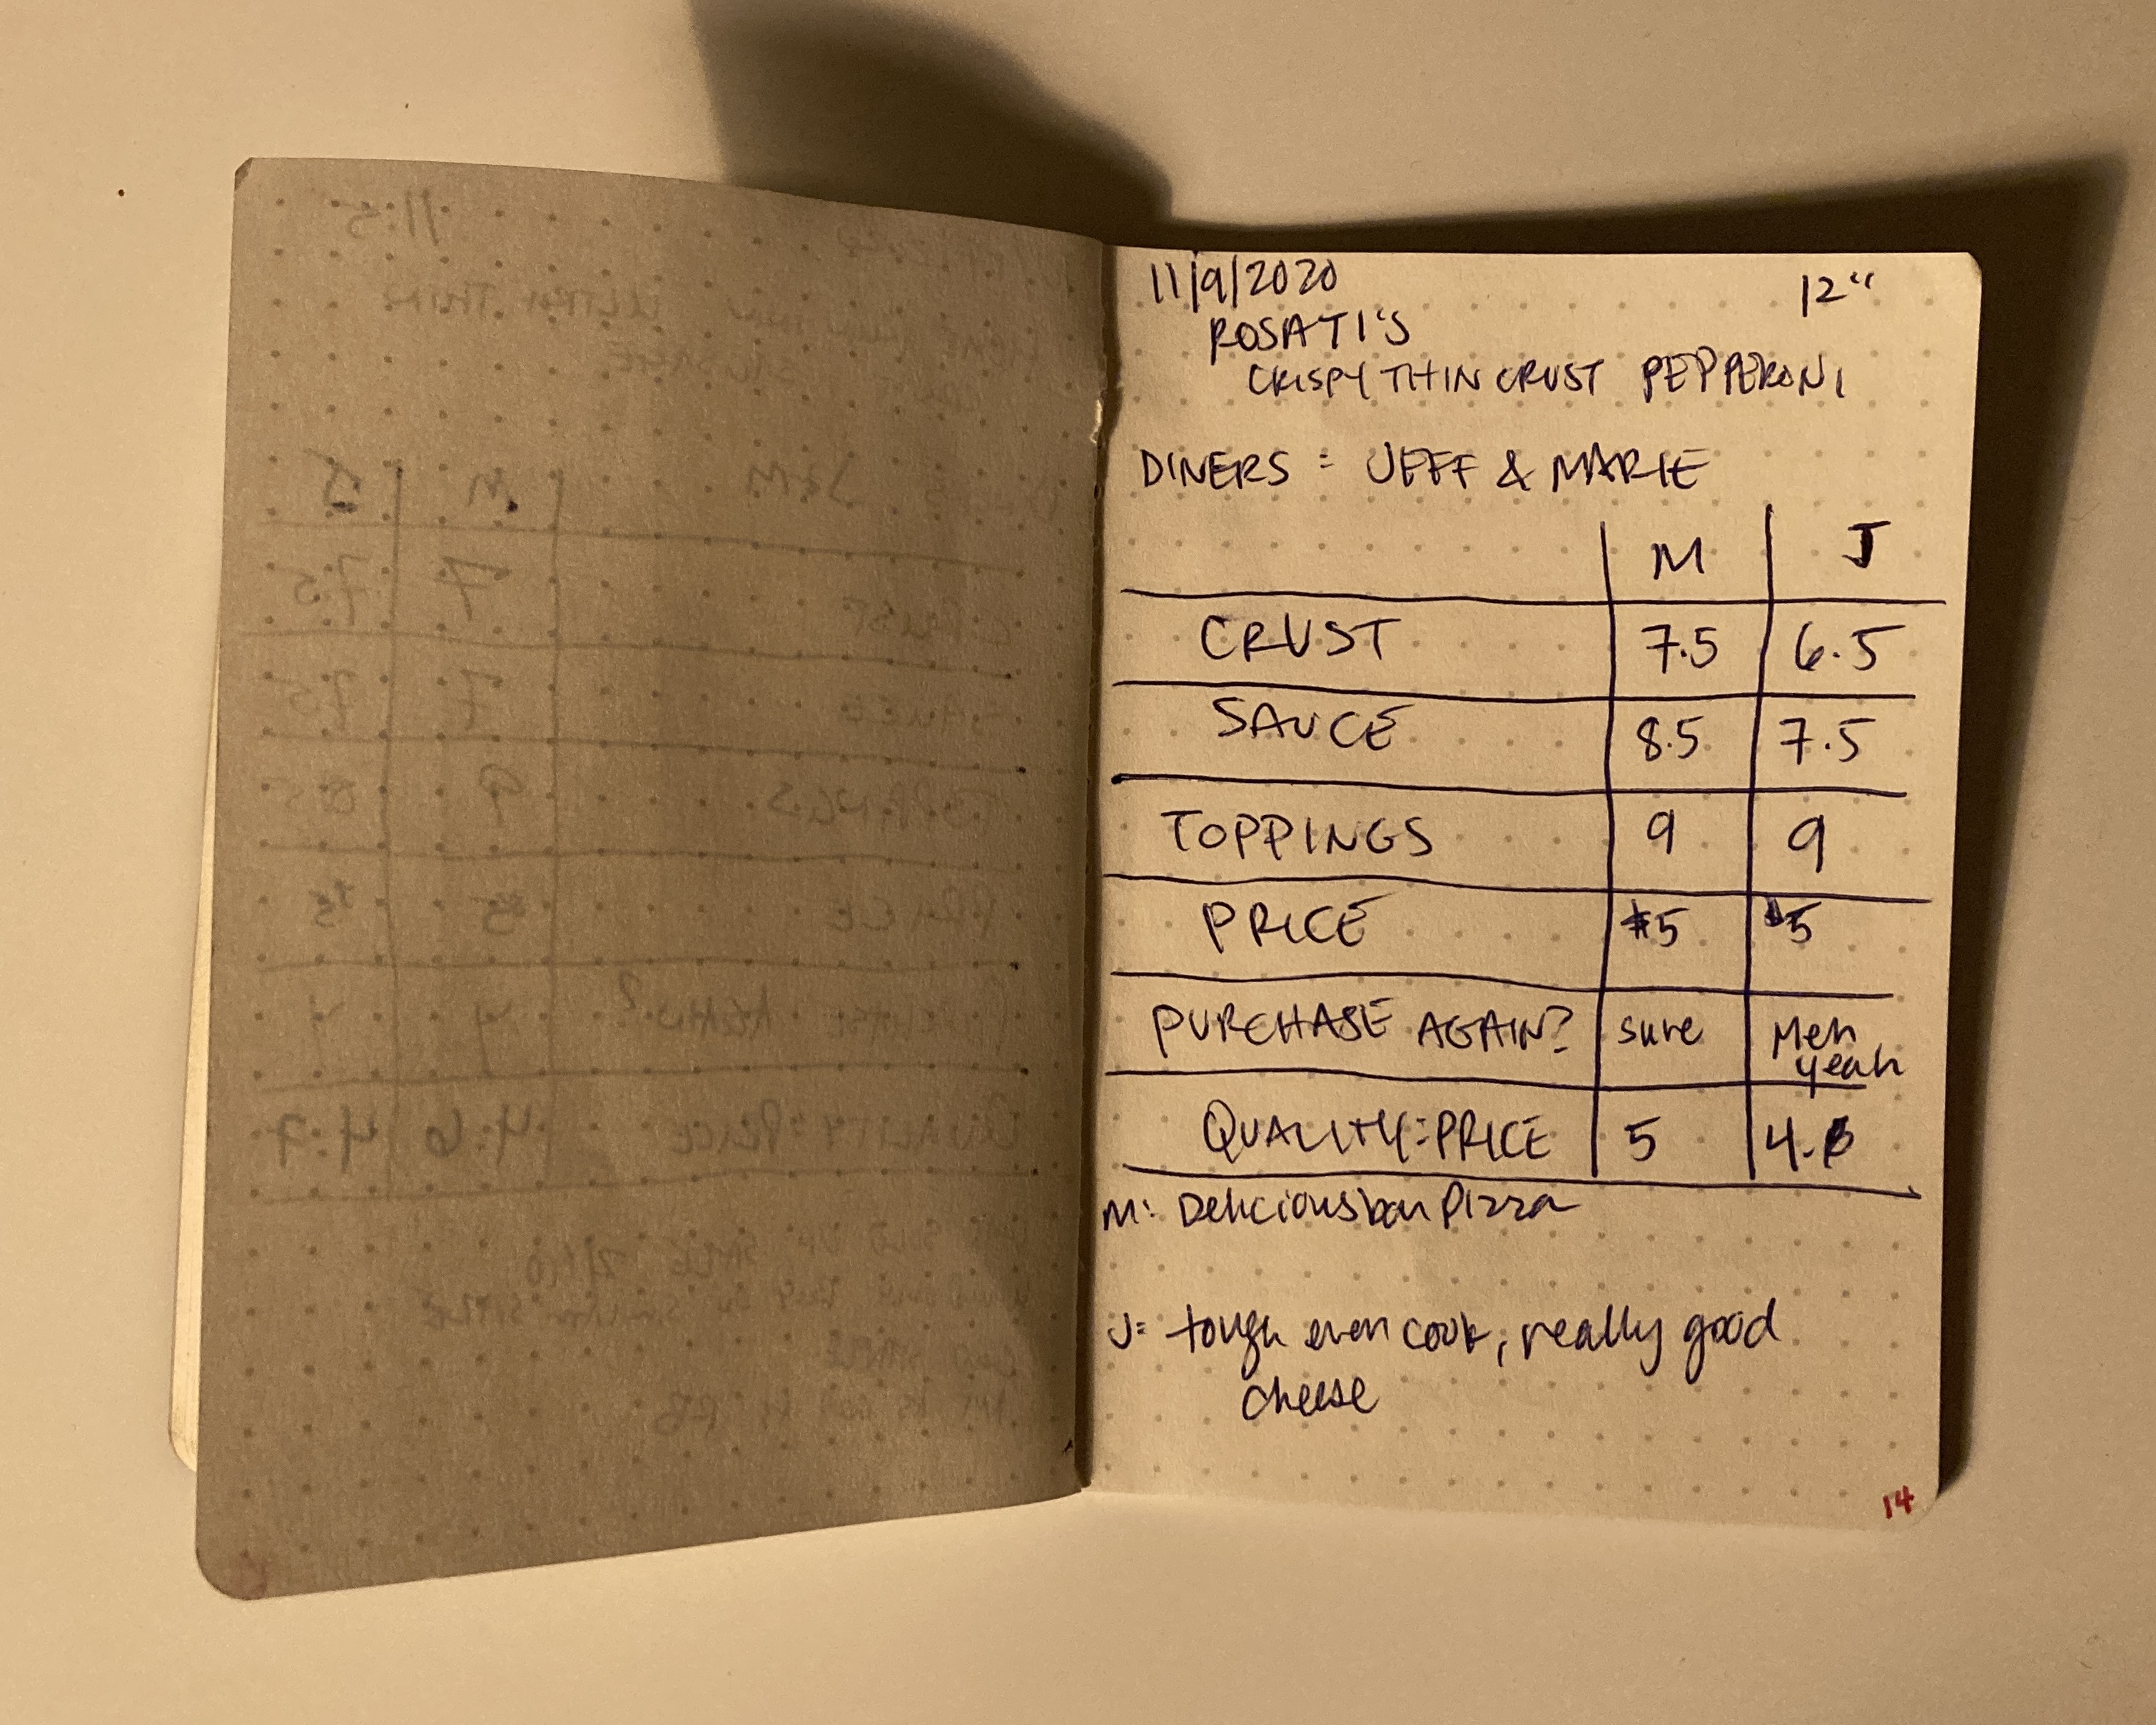 11/9/2020 12"
ROSATI'S
CRISPY THIN CRUST PEPPERONI
DINERS = JEFF & MARIE
M J
CRUST 7.5 6.5
SAUCE 8.5 7.5
TOPPINGS 9 9
PRICE $5 $5
PURCHASE AGAIN? sure Meh
yeah
QUALITY:PRICE 5
M: Delicious bar Pizza
J= tough even cook, really good
cheese
14